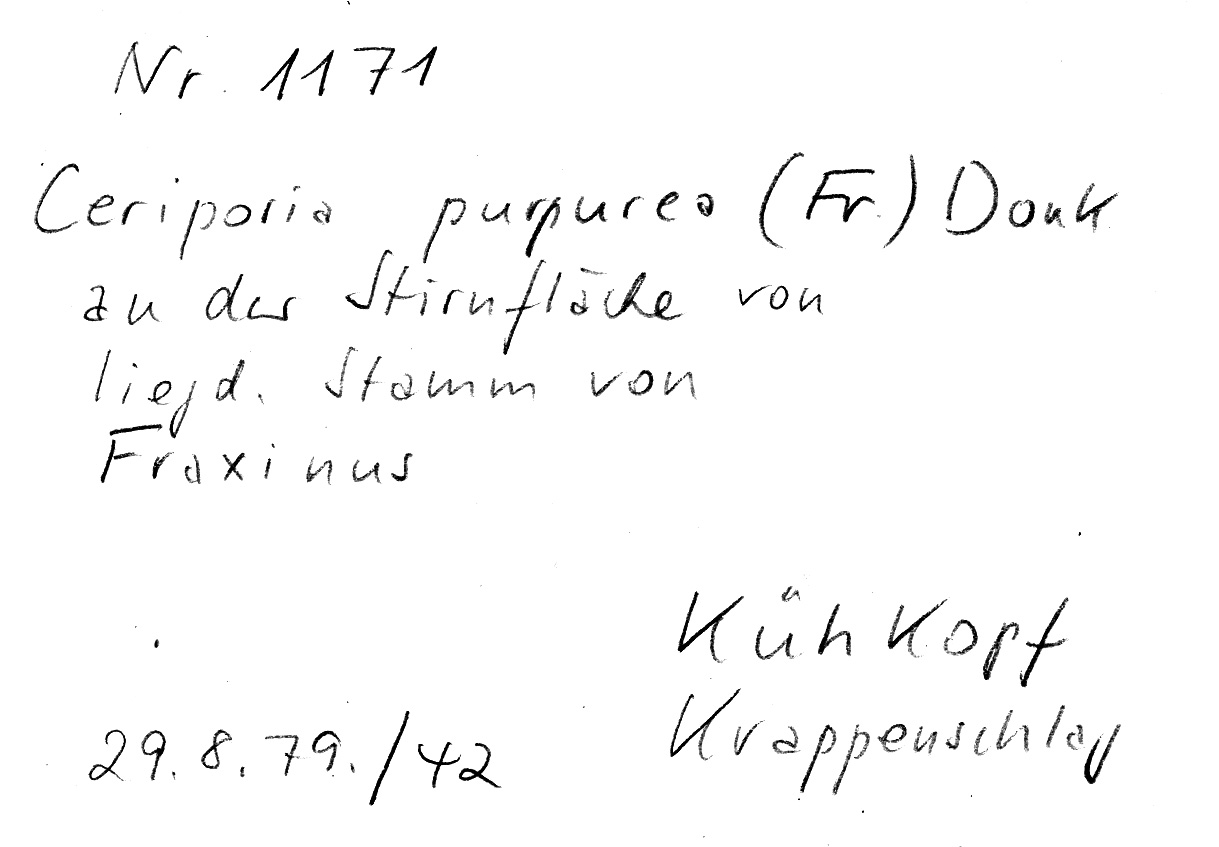 Nr. 1171
Ceriporia purpurea (Fr.) Donk
an der Stirnfläche von
liegd. Stamm von
Fraxinus
Kühkopf
Krappenschlag
29.8.79./42